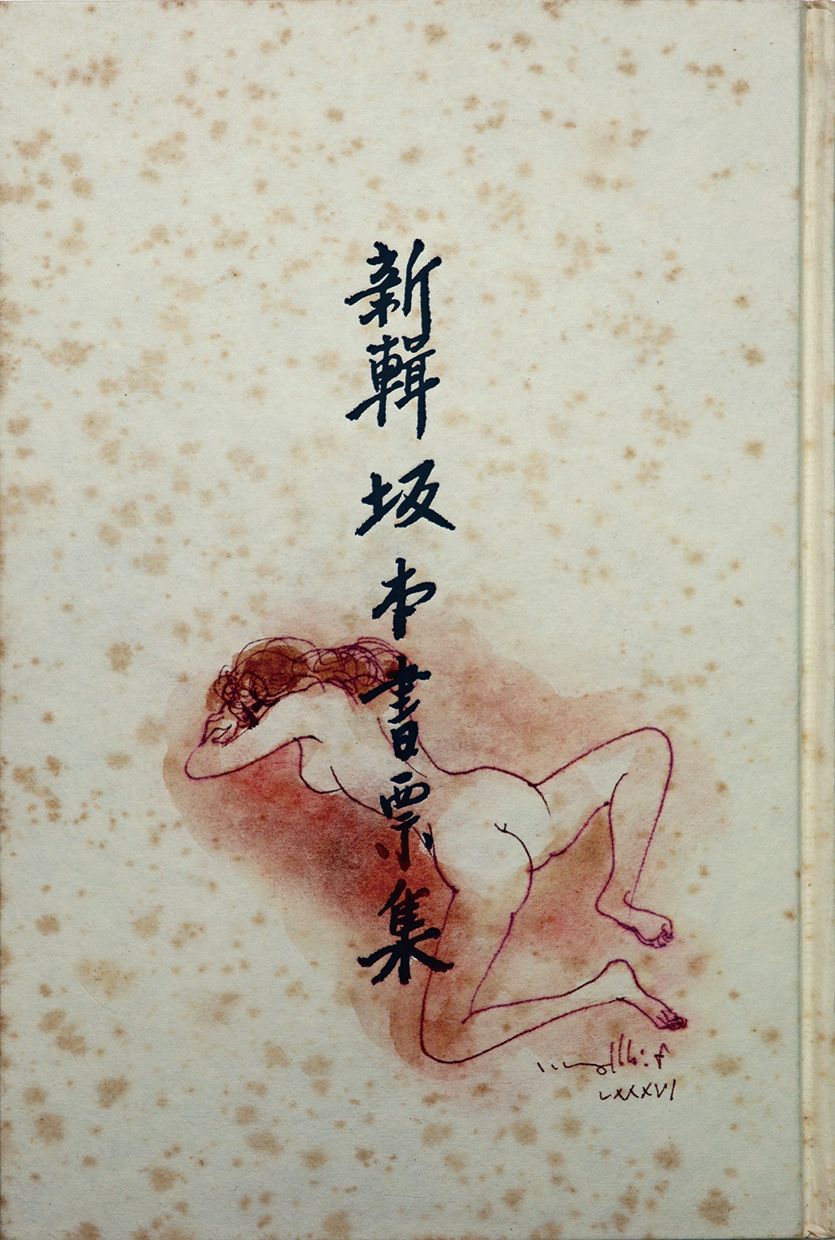 新輯坂本書票集
LXXXVI